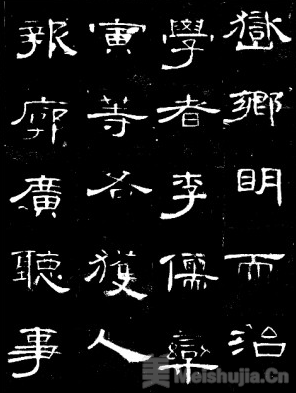 嶽鄉明而治
學者李儒欒
寅等各獲人
報廓廣聽事
美 Meishujia.Cn